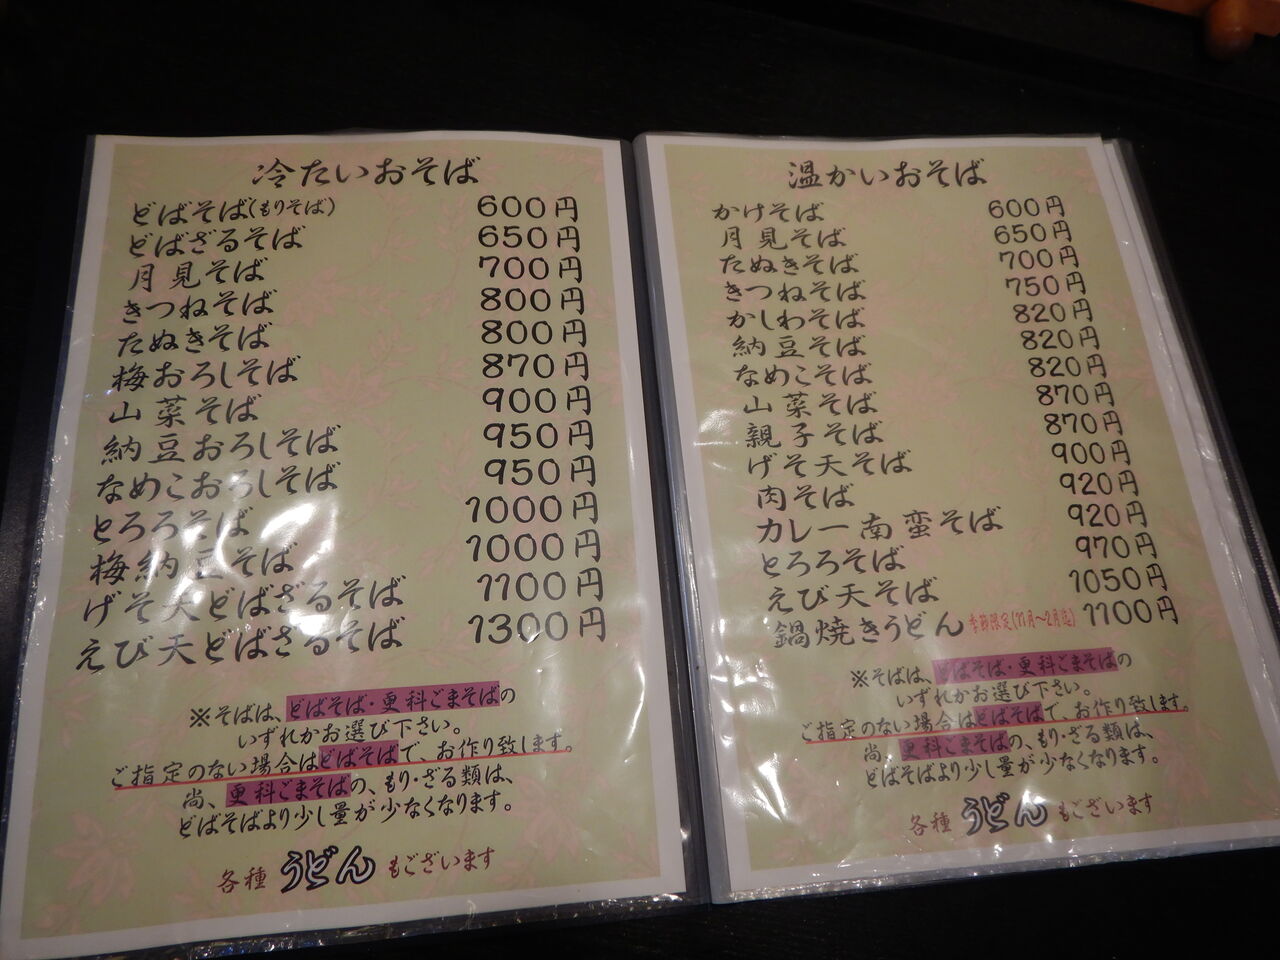 冷たいおそば
どばそば(もりそば) 600円
どばざるそば 650円
月見そば 700円
きつねそば 800円
たぬきそば 800円
梅おろしそば 870円
山菜そば 900円
納豆おろしそば 950円
なめこおろしそば 950円
とろろそば 1000円
梅納豆そば 1000円
げそ天どばざるそば 1100円
えび天どばざるそば 1300円
※そばは、どばそば・更科ごまそばの
いずれかお選び下さい。
ご指定のない場合はどばそばで、お作り致します。
尚、更科ごまそばの、もり・ざる類は、
どばそばより少し量が少なくなります。
各種 うどん もございます
温かいおそば
かけそば 600円
月見そば 650円
たぬきそば 700円
きつねそば 750円
かしわそば 820円
納豆そば 820円
なめこそば 820円
山菜そば 870円
親子そば 870円
げそ天そば 900円
肉そば 920円
カレー南蛮そば 920円
とろろそば 970円
えび天そば 1050円
鍋焼きうどん 季節限定(11月〜2月迄) 1100円
※そばは、どばそば・更科ごまそばの
いずれかお選び下さい。
ご指定のない場合はどばそばで、お作り致します。
尚、更科ごまそばの、もり・ざる類は、
どばそばより少し量が少なくなります。
各種 うどん もございます